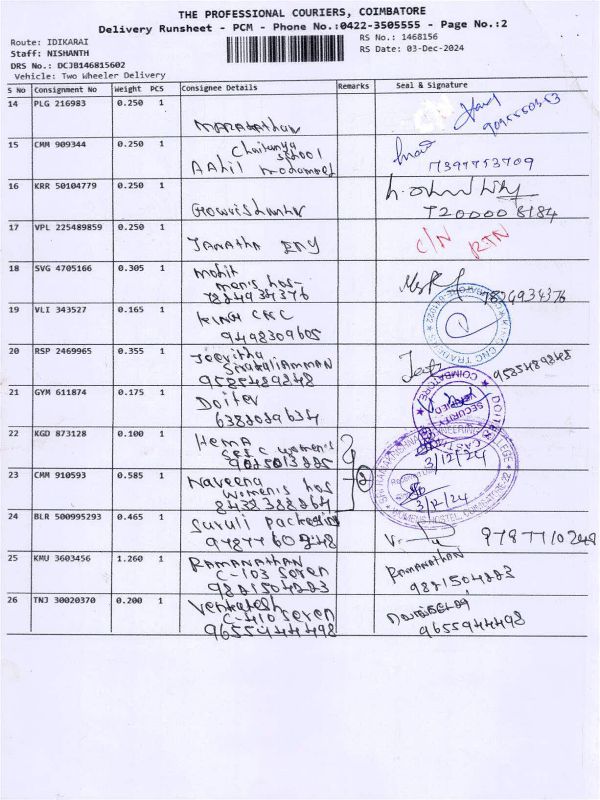 THE PROFESSIONAL COURIERS, COIMBATORE
Delivery Runsheet - PCM - Phone No.:0422-3505555 - Page No.:2
Route: IDIKARAI
RS No.: 1468156
Staff: NISHANTH
RS Date: 03-Dec-2024
DRS No.: DCJB146815602
Vehicle: Two Wheeler Delivery
S No Consignment No Weight PCS Consignee Details Remarks Seal & Signature
14 PLG 216983 0.250 1
15 CMM 909344 0.250 1 Chaitanya School
AAhil mohammed 7397753709
16 KRR 50104779 0.250 1
Gowrishankar 720000 8184
17 VPL 225489859 0.250 1
JANATHA C/N RTN
18 SVG 4705166 0.305 1 Mohit
men's hos-
7824934376 7824934376
19 VLI 343527 0.165 1 KING CNC
9498309605
20 RSP 2469965 0.355 1 Jeevitha
9585489848 9585489848
21 GYM 611874 0.175 1 Doiter
6382039634
22 KGD 873128 0.100 1 Hema
women's
9025013885 3/12/24
23 CMM 910593 0.585 1 Naveena
women's hos
8438388864 3/12/24
24 BLR 500995293 0.465 1 Suruli packaging
9787760248 9787710248
25 KMU 3603456 1.260 1 RAMANATHAN
C-103 Seven
9821504223 Ramanathan
9821504223
26 TNJ 30020370 0.200 1 Venkatesh
C-410 Seven
9655944498 9655944498